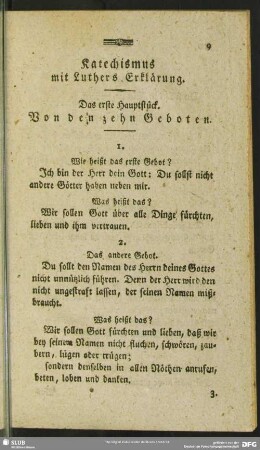 9
Katechismus
mit Luthers Erklärung.
Das erste Hauptstück.
Von den zehn Geboten.
1.
Wie heißt das erste Gebot?
Ich bin der Herr dein Gott: Du sollst nicht
andere Götter haben neben mir.
Was heißt das?
Wir sollen Gott über alle Dinge fürchten,
lieben und ihm vertrauen.
2.
Das andere Gebot.
Du sollt den Namen des Herrn deines Gottes
nicht unnützlich führen. Denn der Herr wird den
nicht ungestraft lassen, der seinen Namen miß-
braucht.
Was heißt das?
Wir sollen Gott fürchten und lieben, daß wir
bey seinem Namen nicht fluchen, schwören, zau-
bern, lügen oder trügen;
sondern denselben in allen Nöthen anrufen,
beten, loben und danken.
3.
SLUB
DFG